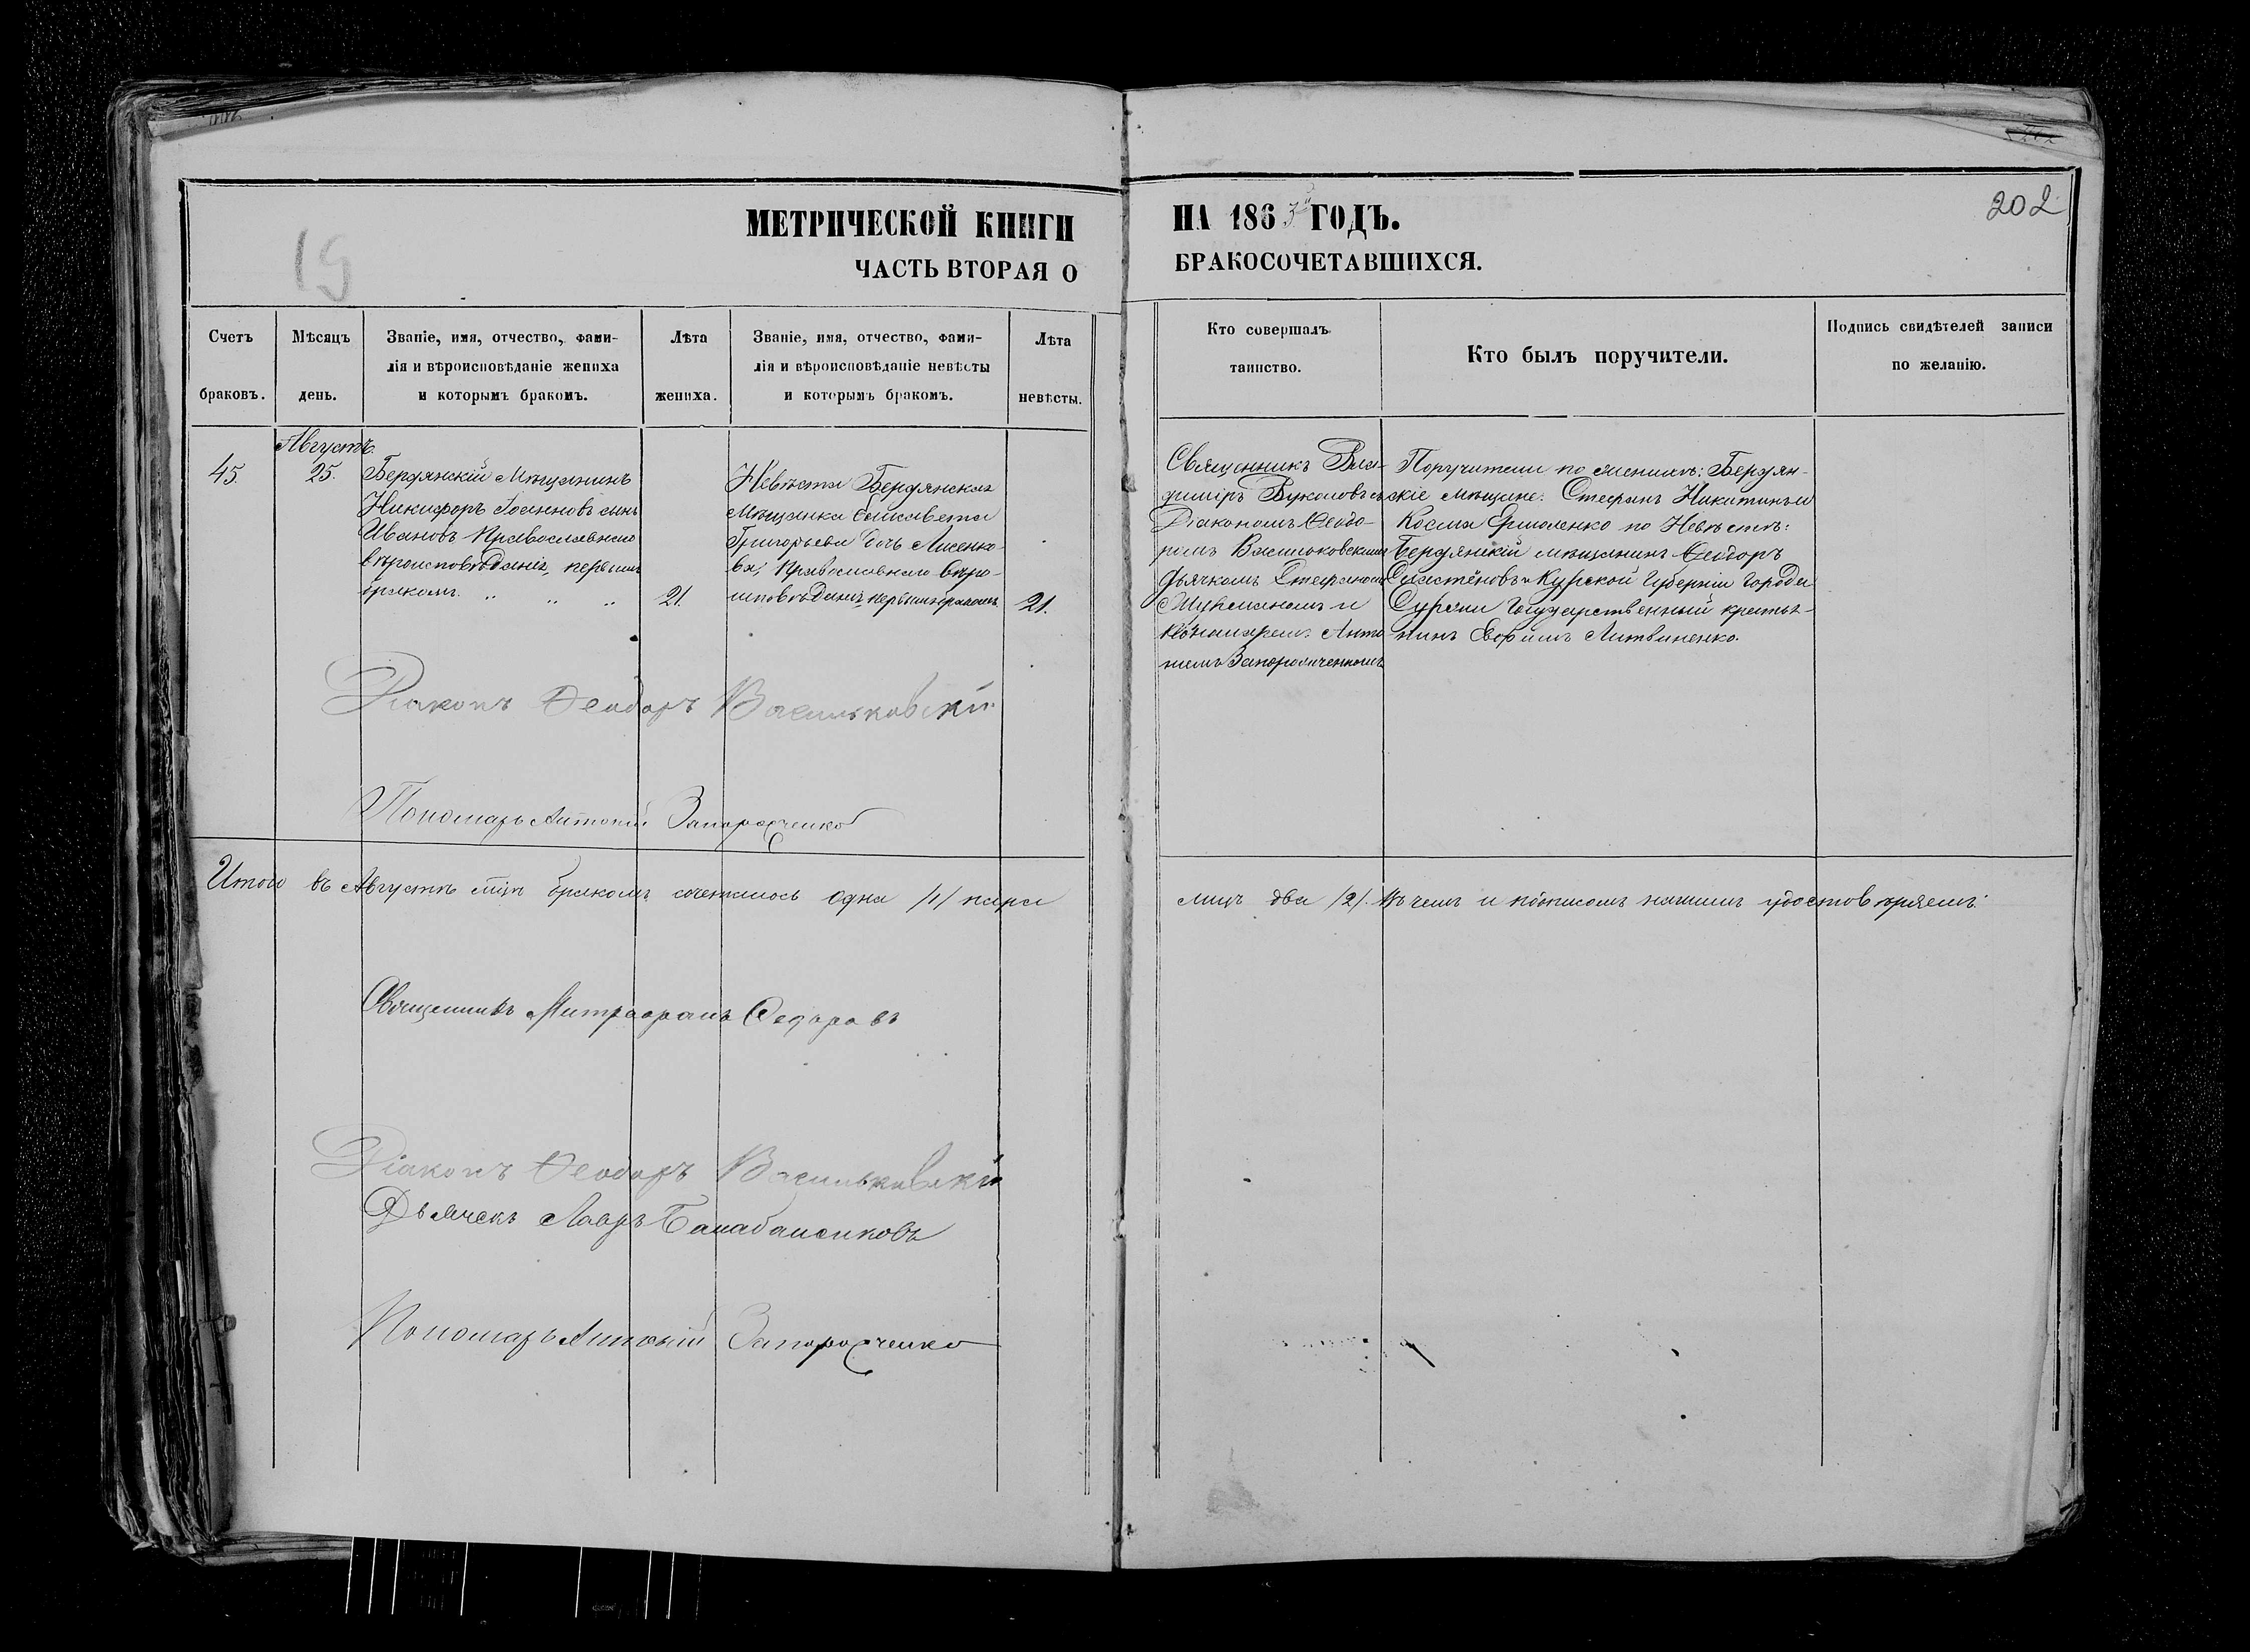 202
15
МЕТРИЧЕСКОЙ КНИГИ НА 1863й ГОДЪ.
ЧАСТЬ ВТОРАЯ О БРАКОСОЧЕТАВШИХСЯ.
Счетъ браковъ.
Мѣсяцъ день.
Званіе, имя, отчество, фами-
лія и вѣроисповѣданіе жениха
и которымъ бракомъ.
Лѣта жениха.
Званіе, имя, отчество, фами-
лія и вѣроисповѣданіе невѣсты
и которымъ бракомъ.
Лѣта невѣсты.
Кто совершалъ
таинство.
Кто былъ поручители.
Подпись свидѣтелей записи
по желанію.
Августъ.
45.
25.
Бердянскій Мѣщанинъ
Никифоръ Іоанновъ сынъ
Ивановъ Православнаго
вѣроисповѣданія, первымъ
бракомъ. „ „ „
21.
Невѣста Бердянская
Мѣщанка Елисавета
Григорьева дочь Лисенко-
ва, Православнаго вѣро-
исповѣданія, первымъ бракомъ.
21.
Священникъ Вла-
диміръ Вуколовъ съ
Діакономъ Ѳеодо-
ромъ Васильковскимъ
Дьячкомъ Стефаномъ
и
Пономаремъ Анто-
ніемъ Запорожченкомъ
Поручители по женихѣ: Бердян-
скіе мѣщане: Стефанъ Никитинъ и
Косма Ермоленко по Невѣстѣ:
Бердянскій мѣщанинъ Ѳеодоръ
Сластёновъ и Курской Губерніи города
Суржи Государственный крестья-
нинъ Евфимъ Литвиненко.
Діаконъ Ѳеодоръ Васильковскій
Пономарь Антоній Запорожченко
Итого въ Августѣ мцѣ бракомъ сочеталось одна /1/ пара
лицъ два /2/. Въ чемъ и подписомъ нашимъ удостовѣряемъ:
Священникъ Митрофанъ Федоровъ
Діаконъ Ѳеодоръ Васильковскій
Дьячекъ Лавръ Балабаненковъ
Пономарь Антоній Запорожченко